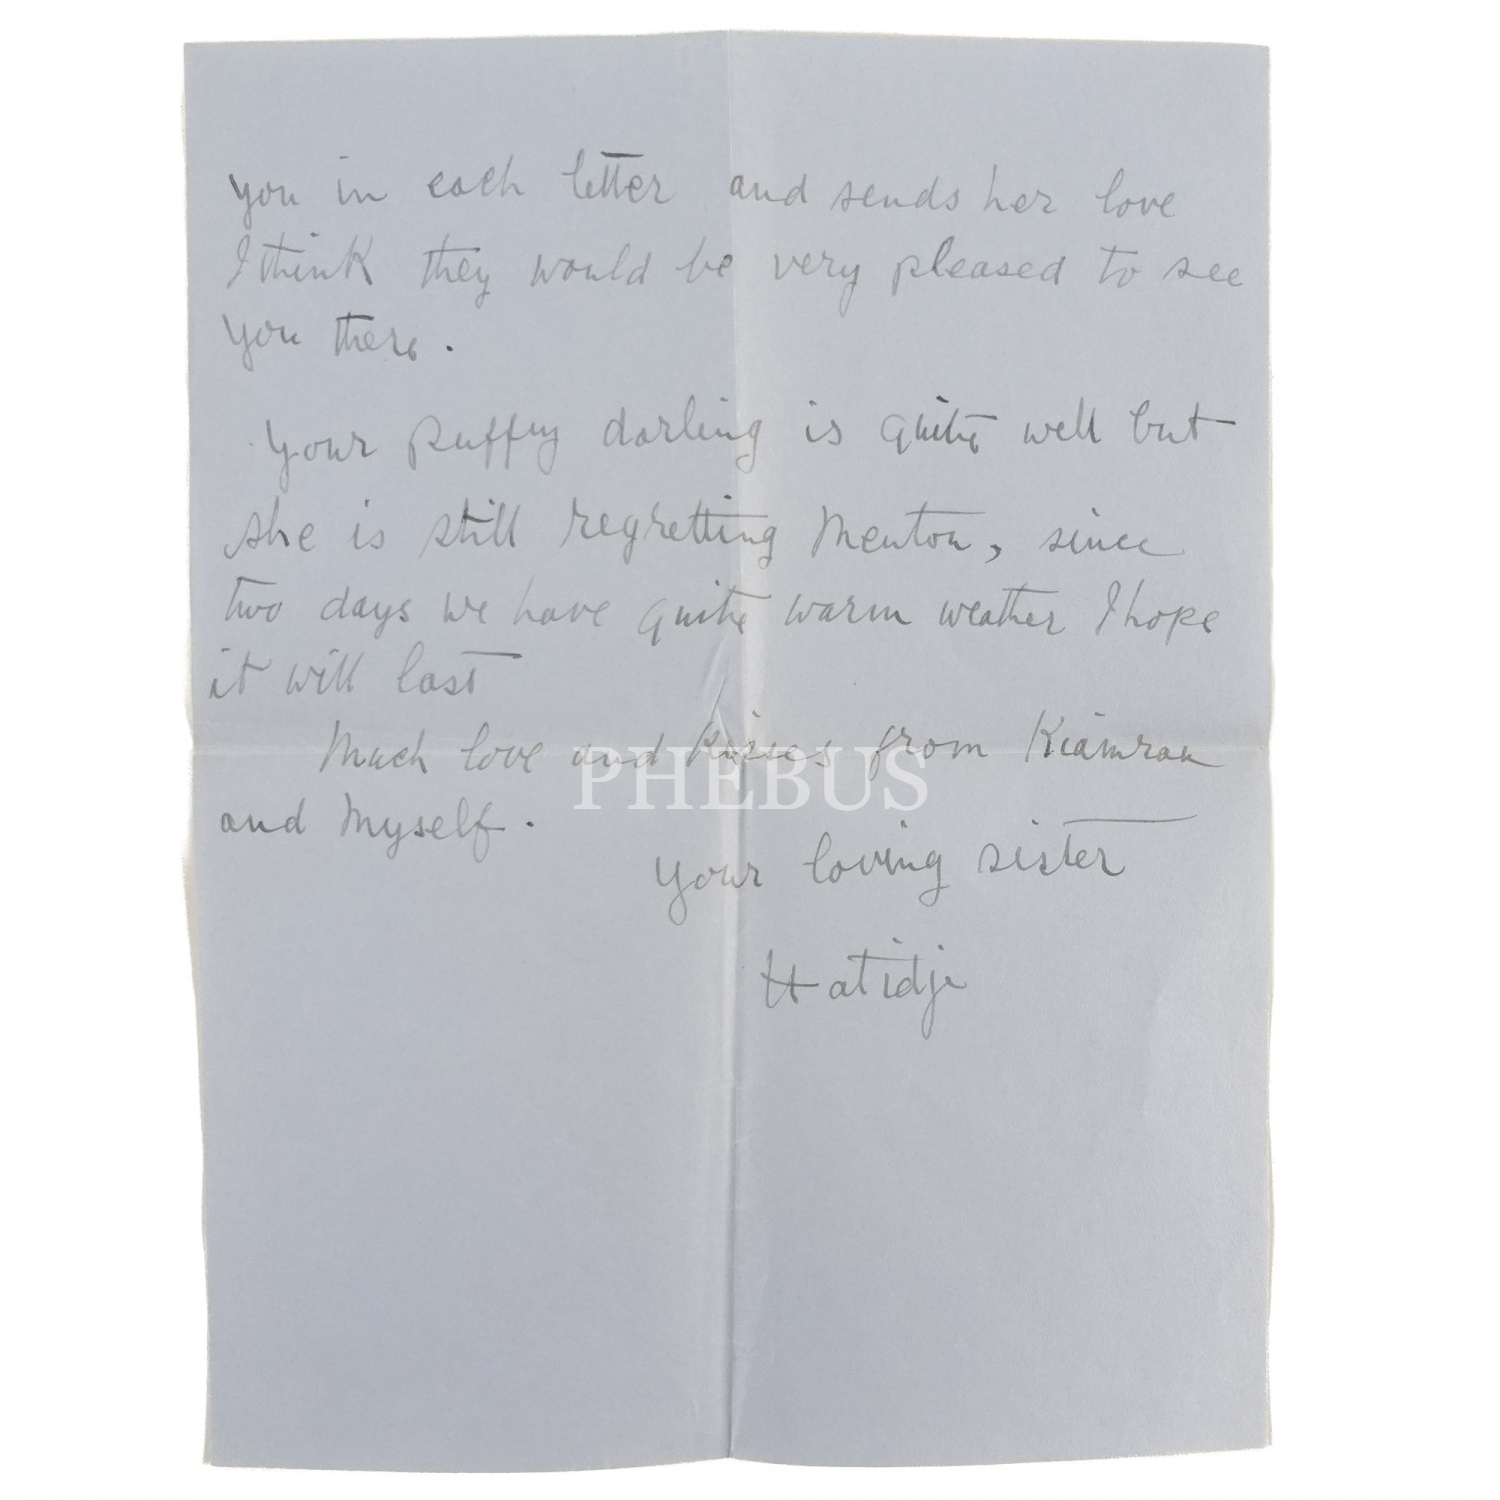 you in each letter and sends her love
I think they would be very pleased to see
you there.
Your puffy darling is quite well but
she is still regretting Menton, since
two days we have quite warm weather I hope
it will last
Much love and kisses from Kiamran
and Myself.
PHEBUS
Your loving sister
Hatidje